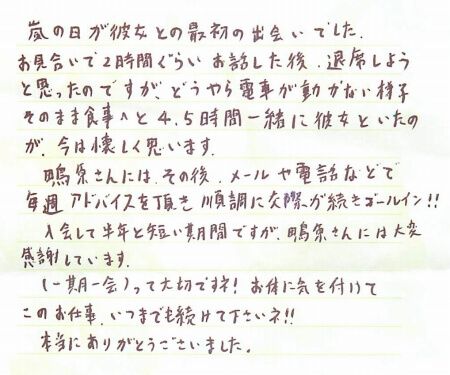 嵐の日が彼女との最初の出会いでした.
お見合いで2時間ぐらいお話した後、退席しよう
と思ったのですが、どうやら電車が動かない様子
そのまま食事へと4.5時間一緒に彼女といたの
が、今は懐しく思います.
鴨原さんには、その後、メールや電話などで
毎週アドバイスを頂き順調に交際が続きゴールイン!!
入会して半年と短い期間ですが、鴨原さんには大変
感謝しています.
(一期一会)って大切ですネ!お体に気を付けて
このお仕事、いつまでも続けて下さいネ!!
本当にありがとうございました.